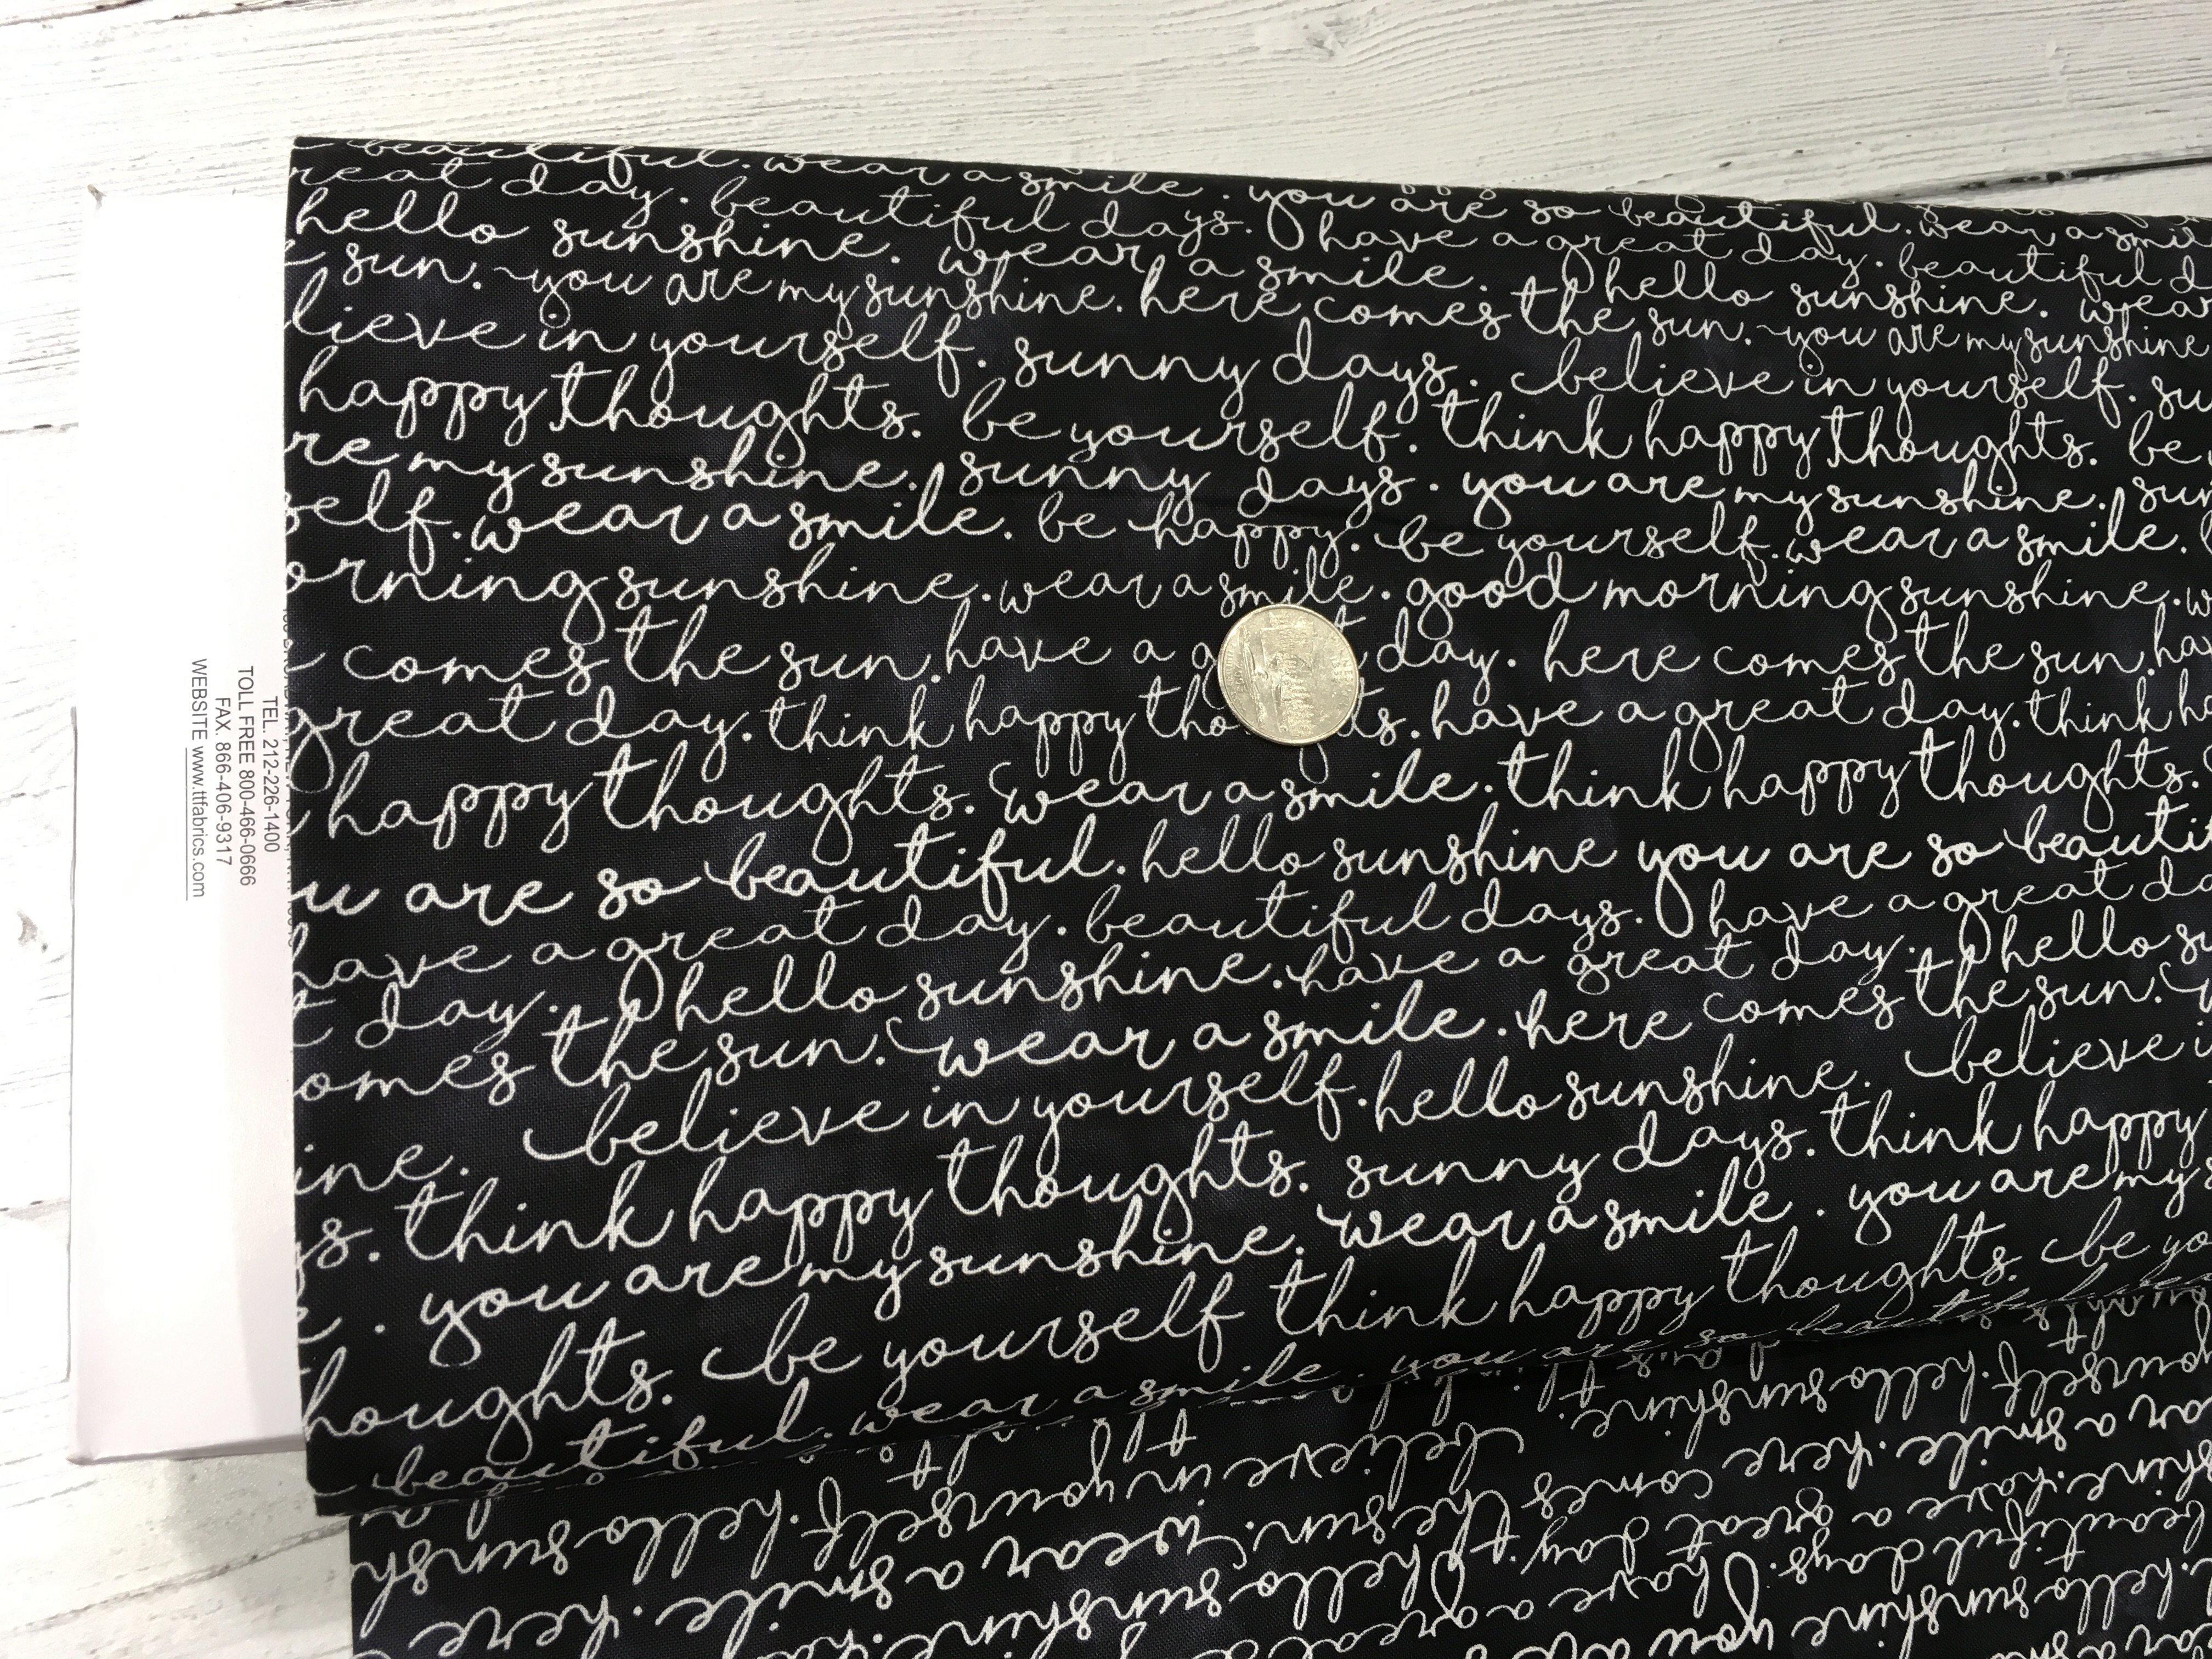 beautiful. wear a smile. you are so beautiful. wear a
great day. beautiful days. have a great day. beautiful
hello sunshine. wear a smile. hello sunshine. wear
sun. you are my sunshine. here comes the sun. you are my sunshine
lieve in yourself. sunny days. believe in yourself.
happy thoughts. be yourself. think happy thoughts. be
re my sunshine. sunny days. you are my sunshine.
self. wear a smile. be happy. be yourself. wear a smile.
orning sunshine. wear a smile. good morning sunshine.
comes the sun. have a day. here comes the sun.
great day. think happy have a great day. think
happy thoughts. wear a smile. think happy thoughts.
u are so beautiful. hello sunshine you are so beauti
have a great day. beautiful days. have a great
t day. hello sunshine. have a great day. hello
omes the sun. wear a smile. here comes the sun.
ine. believe in yourself. hello sunshine. believe
ys. think happy thoughts. sunny days. think happy
you are my sunshine. wear a smile. you are my
houghts. be yourself think happy thoughts. be
beautiful. wear a smile. you are so
TEL. 212-226-1400
TOLL FREE 800-466-0666
FAX. 866-406-9317
WEBSITE www.ttfabrics.com
believe in yourself. hello sunsh
comes the sun. wear a smile. here